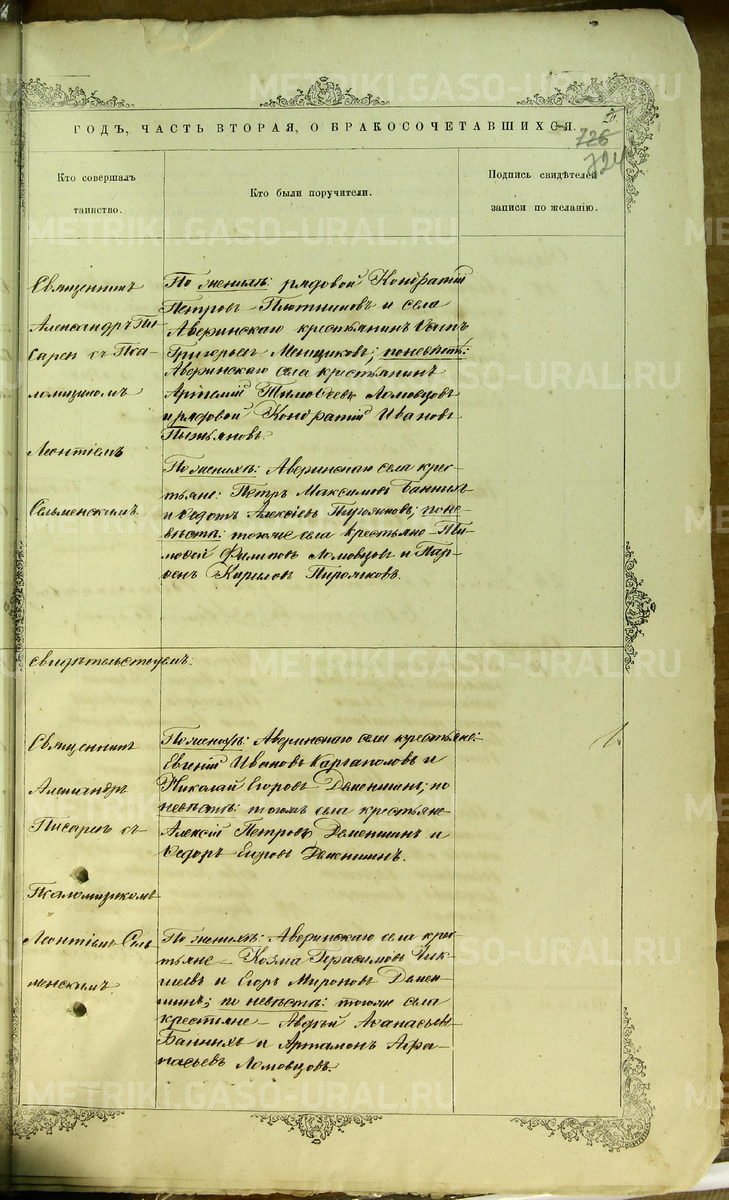 METRIKI.GASO-URAL.RU
ГОДЪ, ЧАСТЬ ВТОРАЯ, О БРАКОСОЧЕТАВШИХСЯ.
726
724
Кто совершалъ
таинство.
Кто были поручители.
Подпись свидѣтелей
записи по желанію.
Священникъ
Александръ Пи-
сарев съ Пса-
ломщикомъ
Леонтіемъ
Сельменскимъ
По женихѣ: рядовой Кондратій
Петровъ Плотниковъ и села
Аверинскаго крестьянинъ
Григорьев Менщиковъ; по невѣстѣ:
Аверинскаго села крестьянинъ
Артемій Тимоѳеевъ Ломовцовъ
и рядовой Кондратій Ивановъ
Пыжьяновъ.
По женихѣ: Аверинскаго села крес-
тьяне: Петръ Максимовъ Банныхъ
и Ѳедотъ Алексѣевъ; по не-
вѣстѣ: тогоже села крестьяне Ти-
моѳей Филиповъ Ломовцовъ и Пар-
ѳенъ Кириловъ Пирожковъ.
свидѣтельствуемъ.
Священникъ
Александръ
Писаревъ съ
Псаломщикомъ
Леонтіемъ Сель-
менскимъ.
По женихѣ: Аверинскаго села крестьяне:
Евгеній Ивановъ Каргаполовъ и
Николай Егоровъ Деменшинъ; по
невѣстѣ: тогожъ села крестьяне
Алексій Петровъ Деменшинъ и
Ѳедоръ Егоровъ Деменшинъ.
По женихѣ: Аверинскаго села крес-
тьяне – Козма Герасимовъ
и Егоръ Мироновъ Демен-
шинъ; по невѣстѣ: тогоже села
крестьяне – Аверій Аѳанасьевъ
Банныхъ и Артамонъ Аѳа-
насьевъ Ломовцовъ.